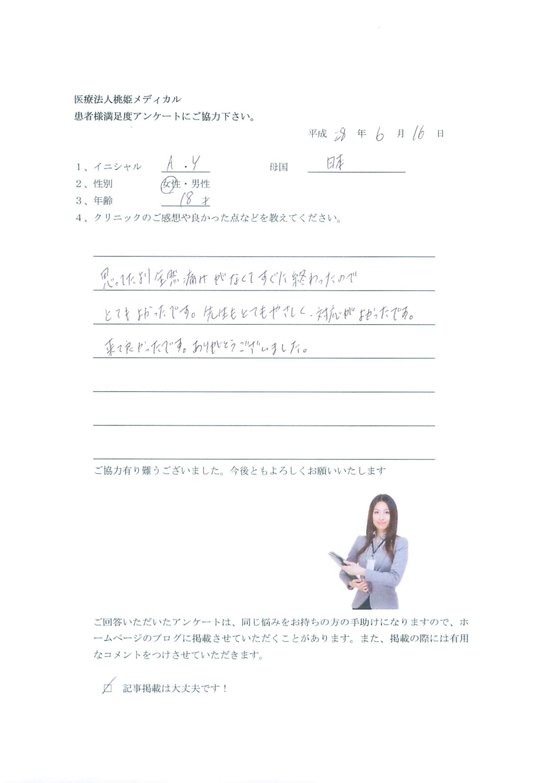 医療法人桃姫メディカル
患者様満足度アンケートにご協力下さい。
平成 28 年 6 月 16 日
1、イニシャル A・Y 母国 日本
2、性別 女性・男性
3、年齢 18才
4、クリニックのご感想や良かった点などを教えてください。
思ってたより全然痛みがなくてすぐに終わったので
とてもよかったです。先生もとてもやさしく、対応がよかったです。
来て良かったです。ありがとうございました。
ご協力有り難うございました。今後ともよろしくお願いいたします
ご回答いただいたアンケートは、同じ悩みをお持ちの方の手助けになりますので、ホ
ームページのブログに掲載させていただくことがあります。また、掲載の際には有用
なコメントをつけさせていただきます。
記事掲載は大丈夫です!